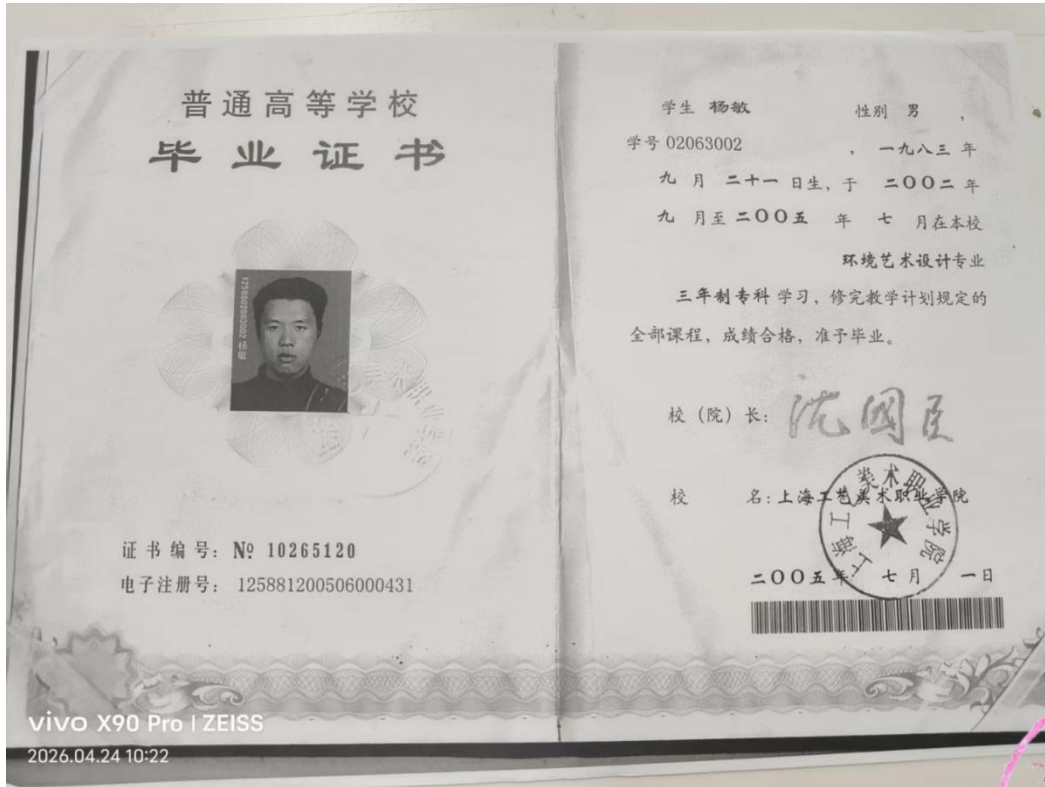 普通高等学校
毕业证书
1258802063002 杨敏
证书编号：№ 10265120
电子注册号：125881200506000431
学生 杨敏 性别 男 ，
学号 02063002 ，一九八三 年
九 月 二十一 日生，于 二〇〇二 年
九 月至 二〇〇五 年 七 月在本校
环境艺术设计专业
三年制专科 学习，修完教学计划规定的
全部课程，成绩合格，准予毕业。
校（院）长：沈國臣
校 名：上海工艺美术职业学院
上海工艺美术职业学院
二〇〇五年 七月 一日
vivo X90 Pro | ZEISS
2026.04.24 10:22